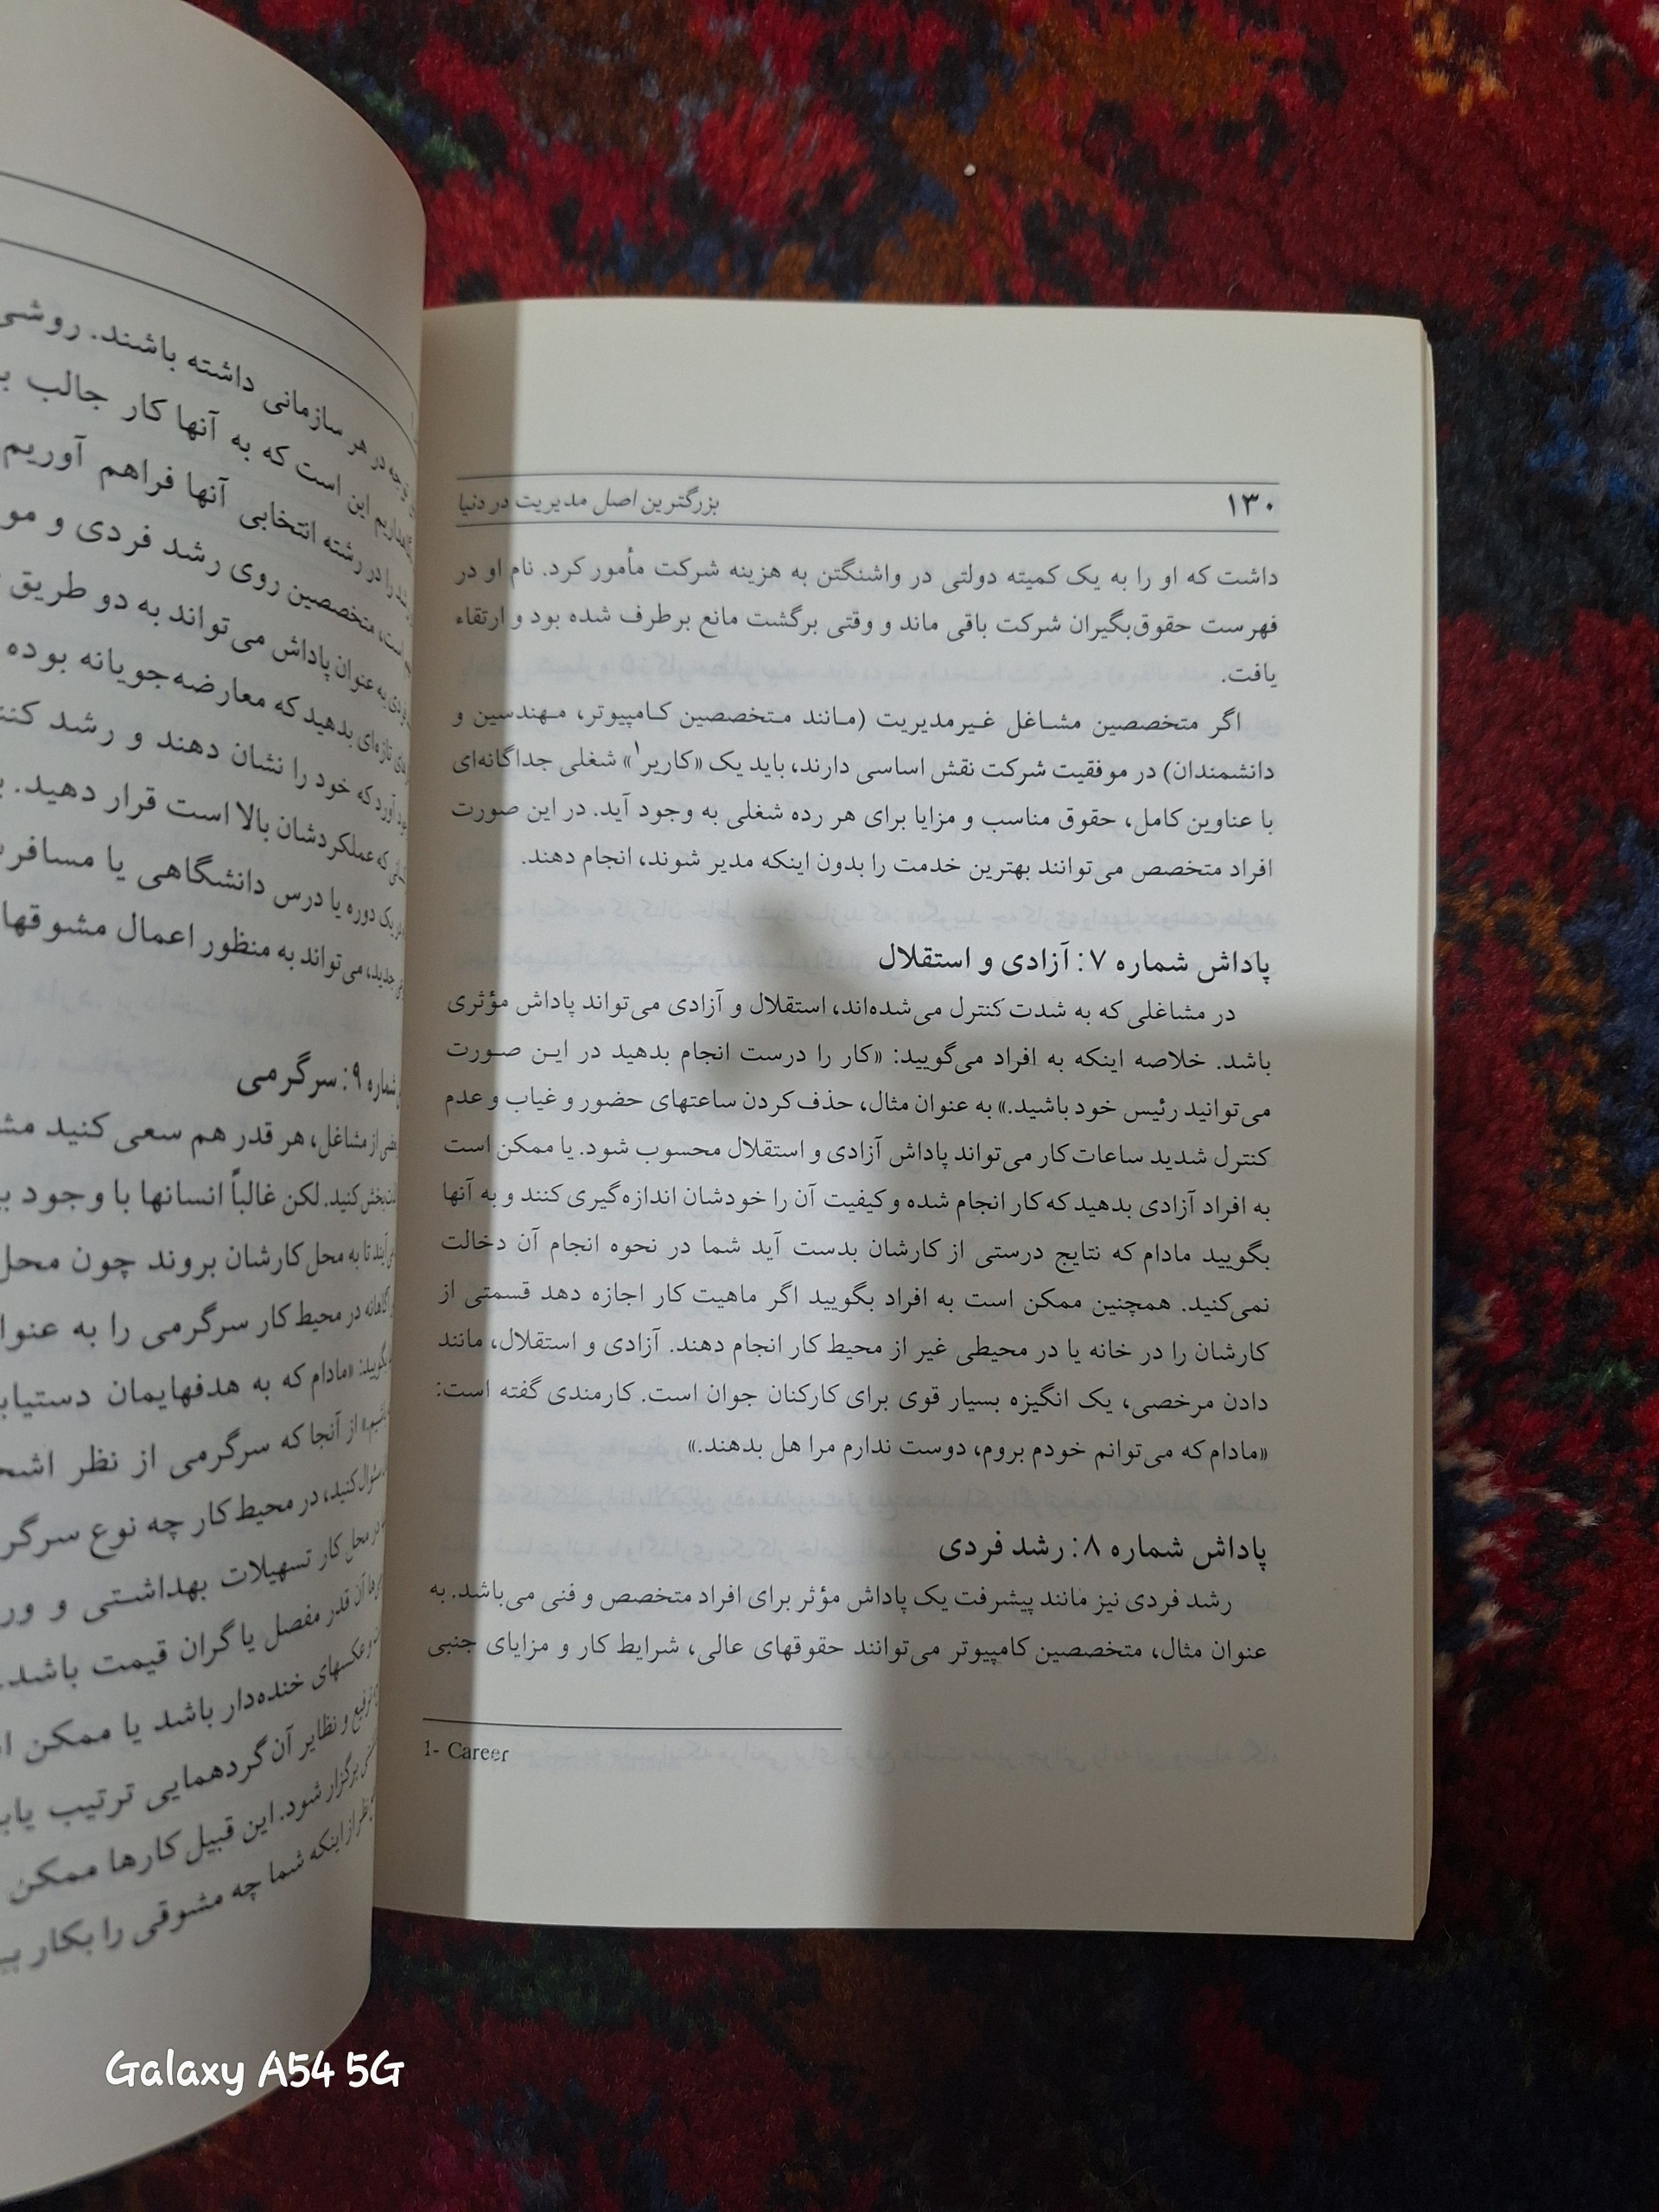 ۱۳۰
بزرگترین اصل مدیریت در دنیا
داشت که او را به یک کمیته دولتی در واشنگتن به هزینه شرکت مأمور کرد. نام او در
فهرست حقوق‌بگیران شرکت باقی ماند و وقتی برگشت مانع برطرف شده بود و ارتقاء
یافت.
اگر متخصصین مشاغل غیرمدیریت (مانند متخصصین کامپیوتر، مهندسین و
دانشمندان) در موفقیت شرکت نقش اساسی دارند، باید یک «کاریر۱» شغلی جداگانه‌ای
با عناوین کامل، حقوق مناسب و مزایا برای هر رده شغلی به وجود آید. در این صورت
افراد متخصص می‌توانند بهترین خدمت را بدون اینکه مدیر شوند، انجام دهند.
پاداش شماره ۷: آزادی و استقلال
در مشاغلی که به شدت کنترل می‌شده‌اند، استقلال و آزادی می‌تواند پاداش مؤثری
باشد. خلاصه اینکه به افراد می‌گویید: «کار را درست انجام بدهید در این صورت
می‌توانید رئیس خود باشید.» به عنوان مثال، حذف کردن ساعتهای حضور و غیاب و عدم
کنترل شدید ساعات کار می‌تواند پاداش آزادی و استقلال محسوب شود. یا ممکن است
به افراد آزادی بدهید که کار انجام شده و کیفیت آن را خودشان اندازه‌گیری کنند و به آنها
بگویید مادام که نتایج درستی از کارشان بدست آید شما در نحوه انجام آن دخالت
نمی‌کنید. همچنین ممکن است به افراد بگویید اگر ماهیت کار اجازه دهد قسمتی از
کارشان را در خانه یا در محیطی غیر از محیط کار انجام دهند. آزادی و استقلال، مانند
دادن مرخصی، یک انگیزه بسیار قوی برای کارکنان جوان است. کارمندی گفته است:
«مادام که می‌توانم خودم بروم، دوست ندارم مرا هل بدهند.»
پاداش شماره ۸: رشد فردی
رشد فردی نیز مانند پیشرفت یک پاداش مؤثر برای افراد متخصص و فنی می‌باشد. به
عنوان مثال، متخصصین کامپیوتر می‌توانند حقوقهای عالی، شرایط کار و مزایای جنبی
1- Career
در هر سازمانی داشته باشند. روشی
این است که به آنها کار جالب
را در رشته انتخابی آنها فراهم آوریم
است، متخصصین روی رشد فردی و
به عنوان پاداش می‌تواند به دو طریق
تازه‌ای بدهید که معارضه‌جویانه بوده
آورد که خود را نشان دهند و رشد
که عملکردشان بالا است قرار دهید.
یک دوره یا درس دانشگاهی یا
جدید، می‌تواند به منظور اعمال مشوقها
شماره ۹: سرگرمی
از مشاغل، هر قدر هم سعی کنید
کنید. لکن غالباً انسانها با وجود
تا به محل کارشان بروند چون محل
در محیط کار سرگرمی را به
«مادام که به هدفهایمان
از آنجا که سرگرمی از نظر
کنید، در محیط کار چه نوع
در محل کار تسهیلات بهداشتی و
آن قدر مفصل یا گران قیمت باشد.
عکسهای خنده‌دار باشد یا ممکن
و نظایر آن گردهمایی ترتیب
برگزار شود. این قبیل کارها ممکن
از اینکه شما چه مشوقی را بکار
Galaxy A54 5G